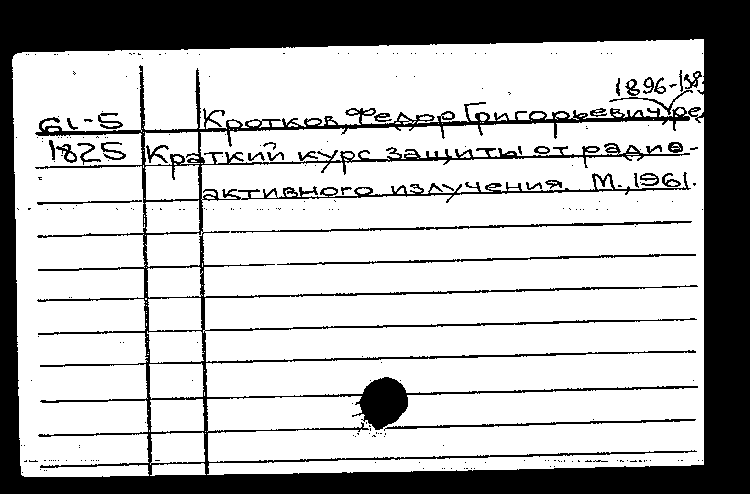 1896-198
61-5 Кротков, Федор Григорьевич, ре
1825 Краткий курс защиты от радио-
активного излучения. М., 1961.